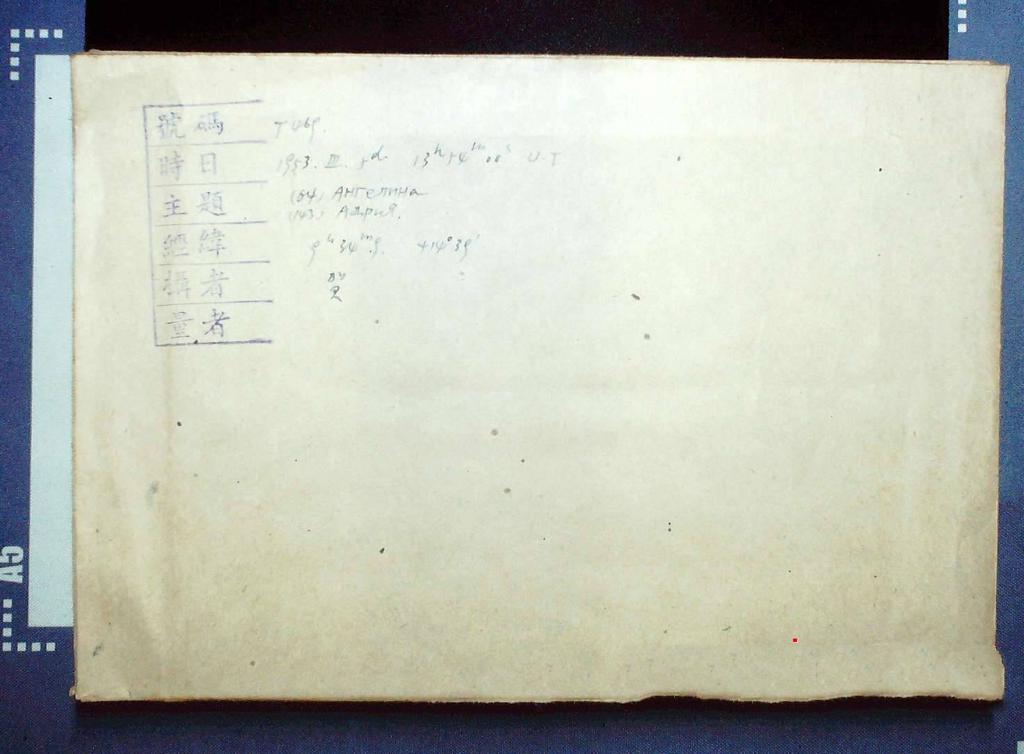 號碼 T469.
時日 1953. III. 5ᵈ 13ʰ54ᵐ00ˢ U.T
主題 (64) Ангелина
(143) Адрия.
經緯 9ʰ34ᵐ.9. +14°39'
攝者
量者
A5